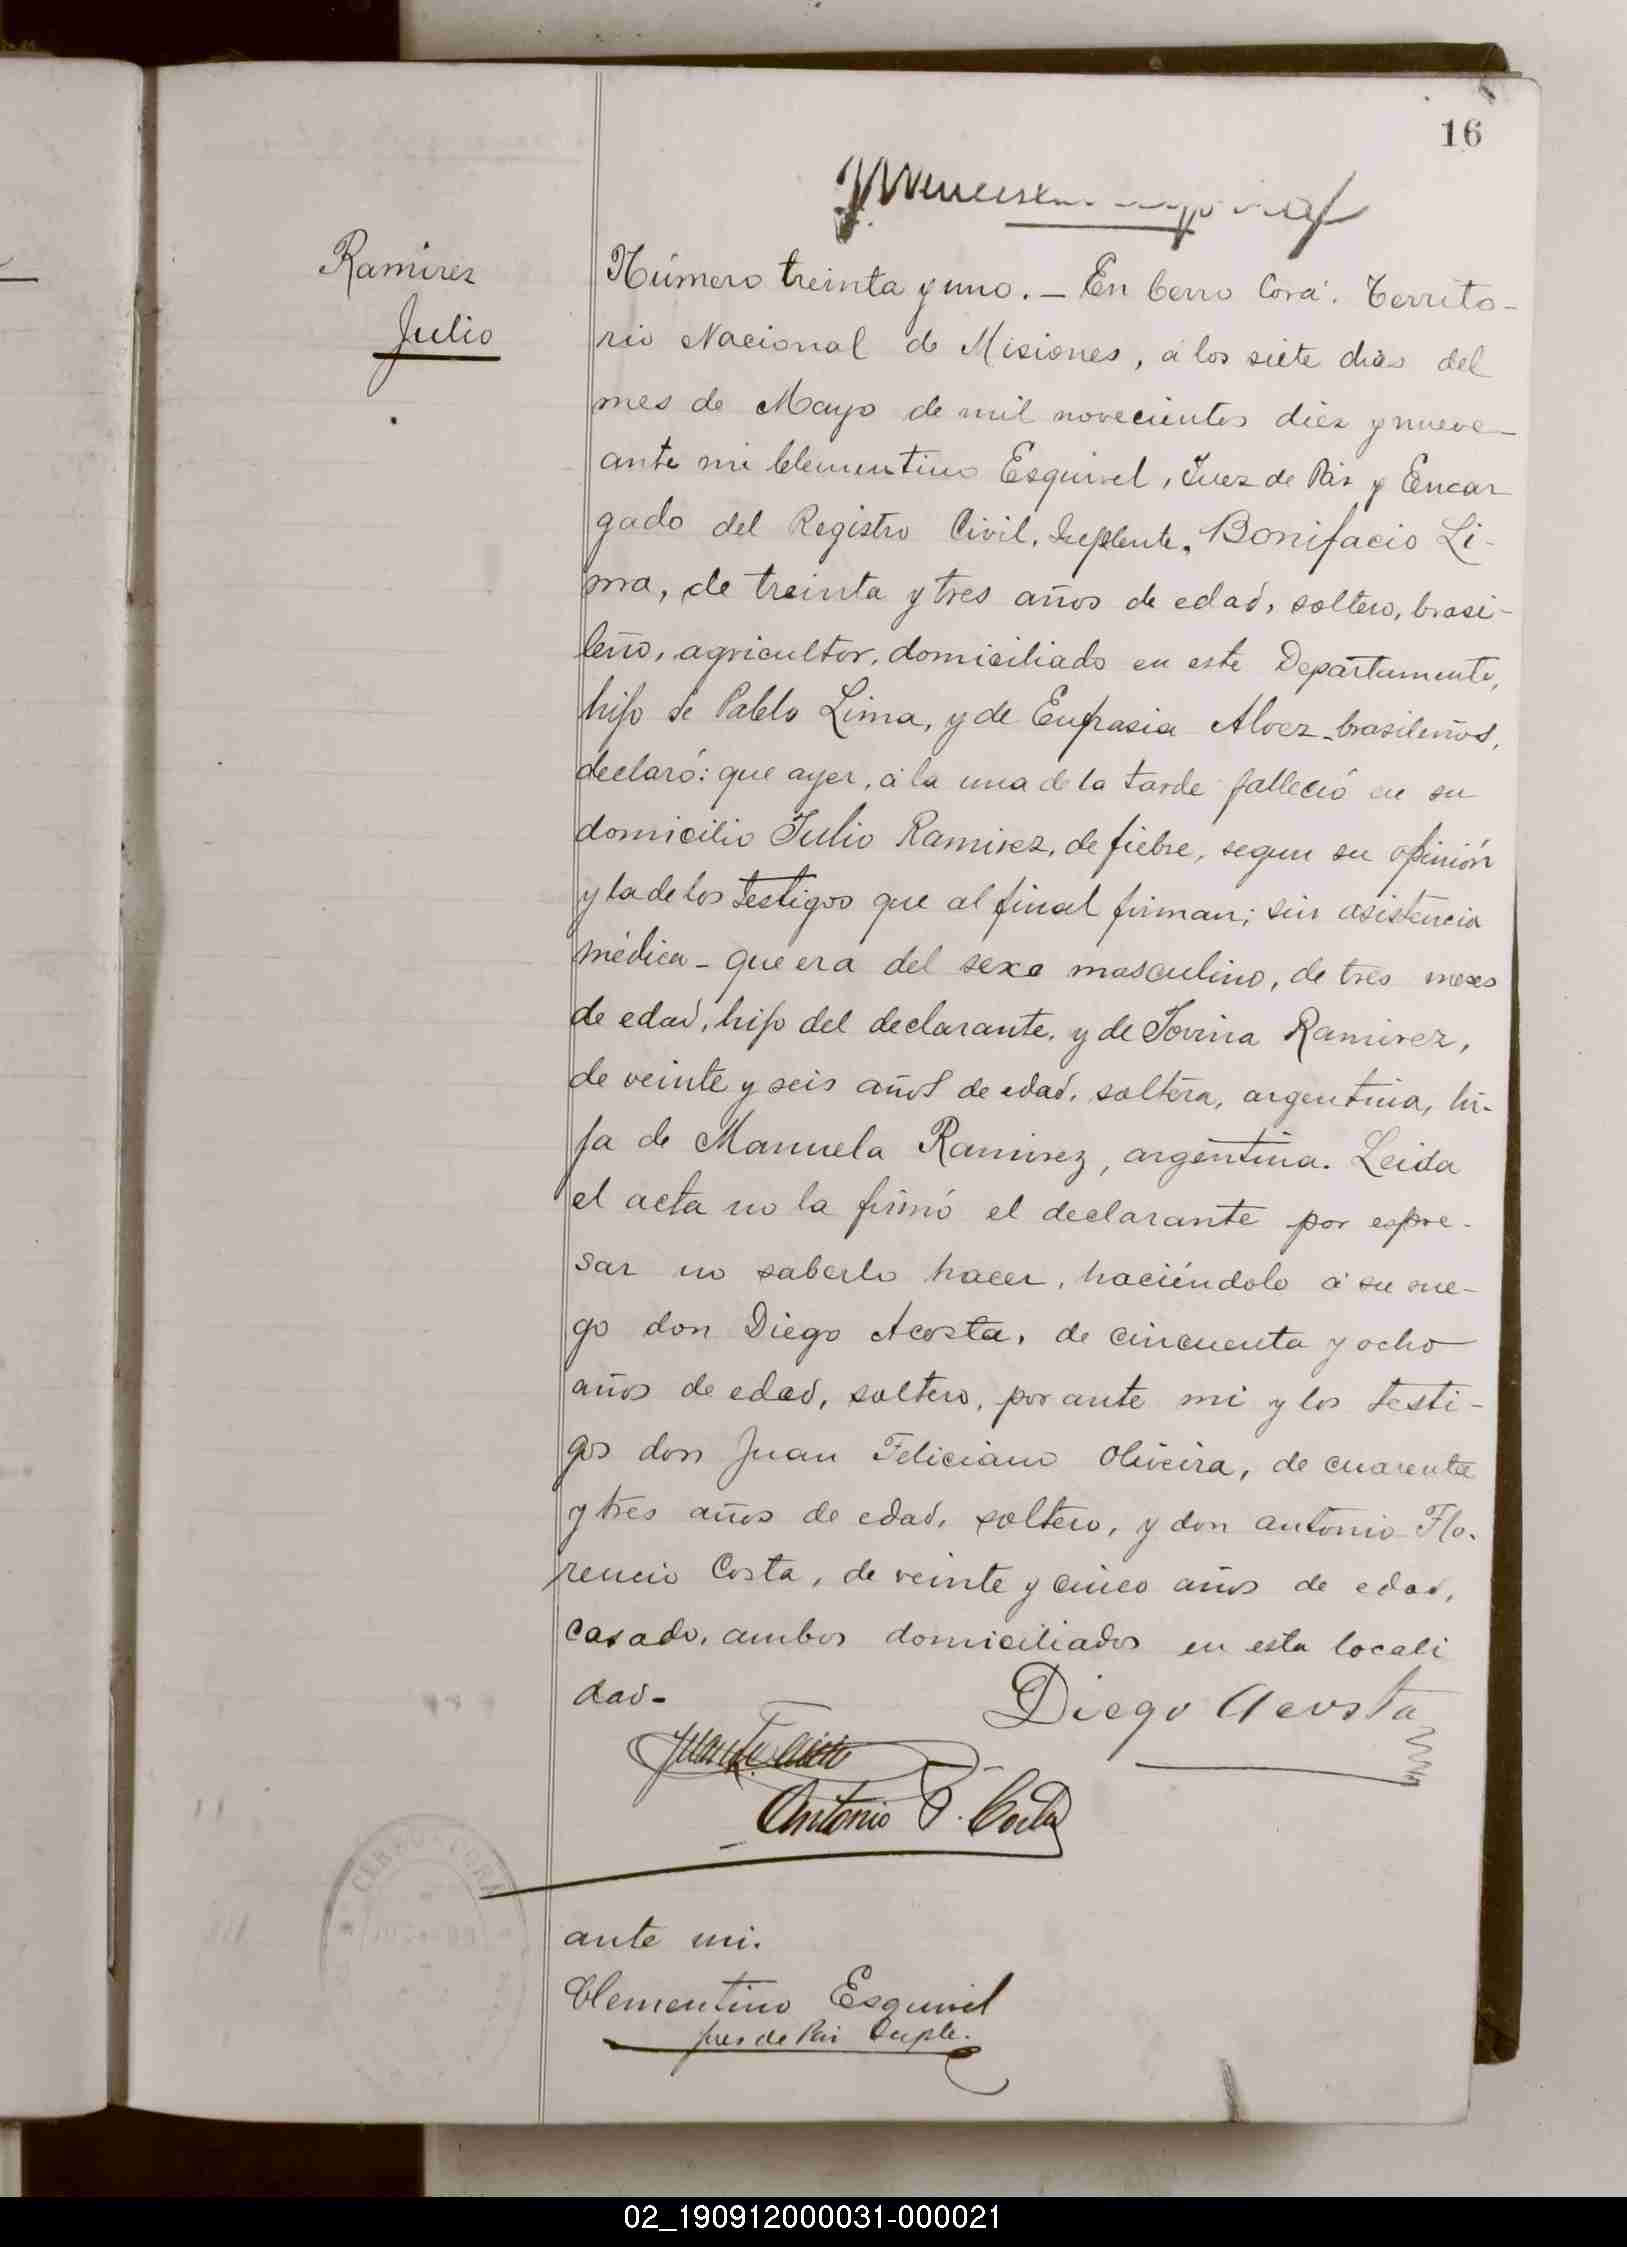 16
Ramirez
Julio
Número treinta y uno. - En Cerro Corá. Territo-
rio Nacional de Misiones, á los siete dias del
mes de Mayo de mil novecientos diez y nueve
ante mi Clementino Esquivel, Juez de Paz y Encar
gado del Registro Civil, Suplente, Bonifacio Li-
ma, de treinta y tres años de edad, soltero, brasi-
leño, agricultor, domiciliado en este Departamento,
hijo de Pablo Lima, y de Eufrasia Alvez brasileños,
declaró: que ayer, á la una de la tarde falleció en su
domicilio Julio Ramirez, de fiebre, segun su opinión
y la de los testigos que al final firman; sin asistencia
médica - que era del sexo masculino, de tres meses
de edad, hijo del declarante, y de Jovina Ramirez,
de veinte y seis años de edad, soltera, argentina, hi-
ja de Manuela Ramirez, argentina. Leida
el acta no la firmó el declarante por espre-
sar no saberlo hacer, haciéndolo á su rue-
go don Diego Acosta, de cincuenta y ocho
años de edad, soltero, por ante mi y los testi-
gos don Juan Feliciano Oliveira, de cuarenta
y tres años de edad, soltero, y don Antonio Flo-
rencio Costa, de veinte y cinco años de edad,
casado, ambos domiciliados en esta locali
dad -
Diego Acosta
Juan F.
Antonio F. Costa
CERRO CORÁ
ante mi.
Clementino Esquivel
Juez de Paz Suple.
02_190912000031-000021